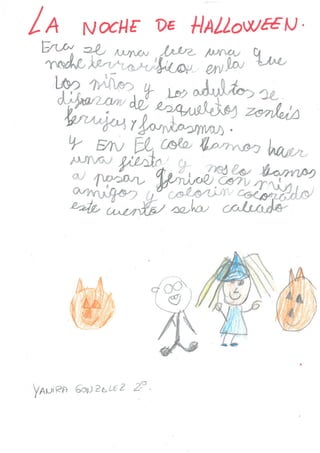 LA NOCHE DE HALLOWEEN.
Era se una vez una
noche terrorífica en la que
Los niños y Los adultos se
difrazan de esqueletos zonbeis
brujas y fantasmas.
y En El cole Vamos haer
una fiesta y noslo Vamos
a pasar genial con mis
amigos y colorin cocorado
este cuento seha cabado
YANIRA GONZALEZ 2º.